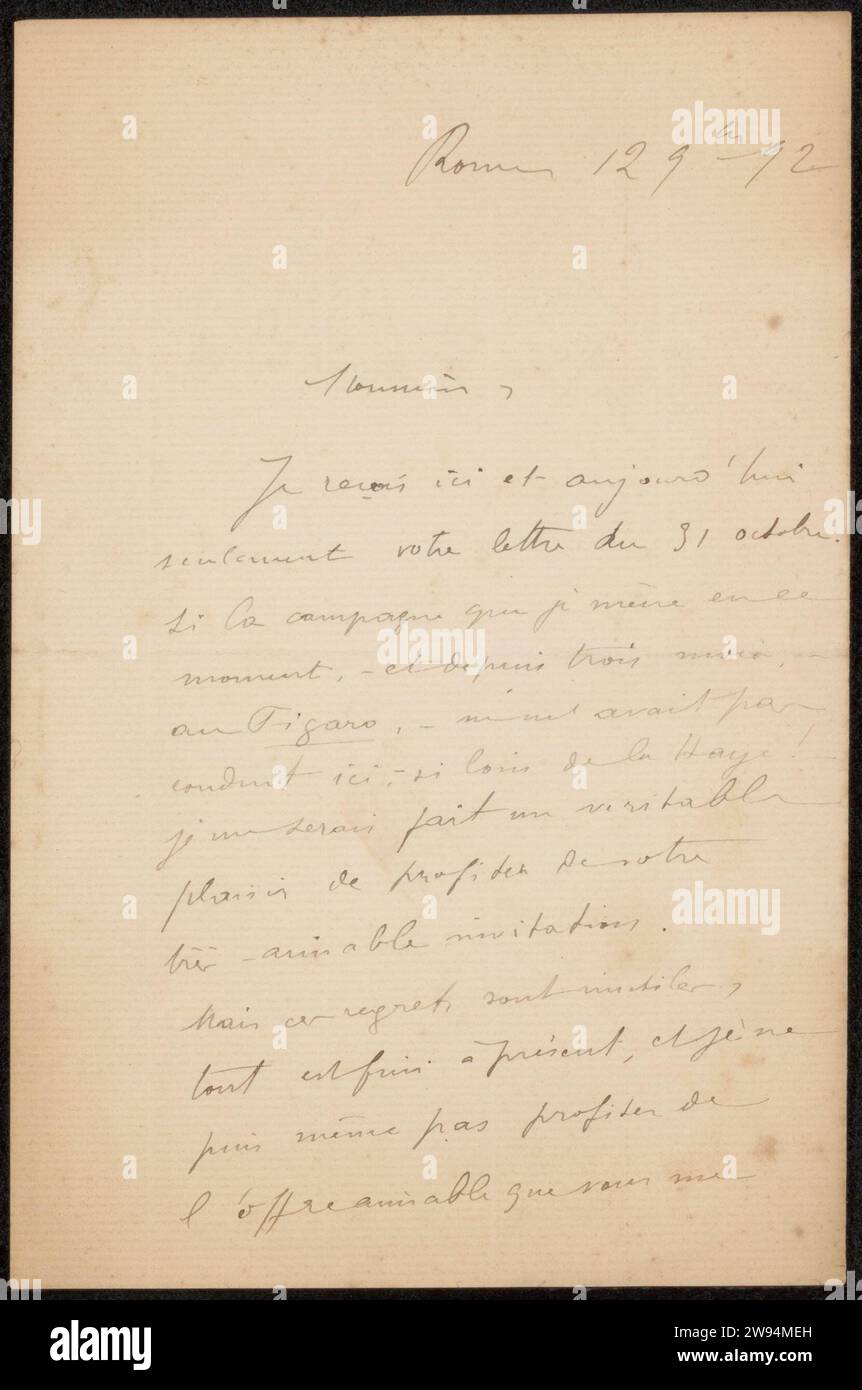 Rome 12 9bre 92
Monsieur,
Je reçois ici et aujourd'hui
seulement votre lettre du 31 octobre.
Si la campagne que je mène en ce
moment, - et depuis trois mois, -
au Figaro, - ne m'avait pas
conduit ici, - si loin de la Haye!
je me serais fait un veritable
plaisir de profiter de votre
très-aimable invitation.
Mais ces regrets sont inutiles,
tout est fini à présent, et je ne
puis même pas profiter de
l'offre aimable que vous me
alamy
Image ID: 2W94MEH
www.alamy.com